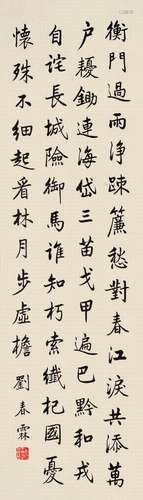 衡門過雨淨疎簾愁對春江淚共添萬
戶耰鋤連海岱三苗戈甲遍巴黔和戎
自詫長城險御馬誰知朽索纖杞國憂
懷殊不細起看林月步虛檐
劉春霖